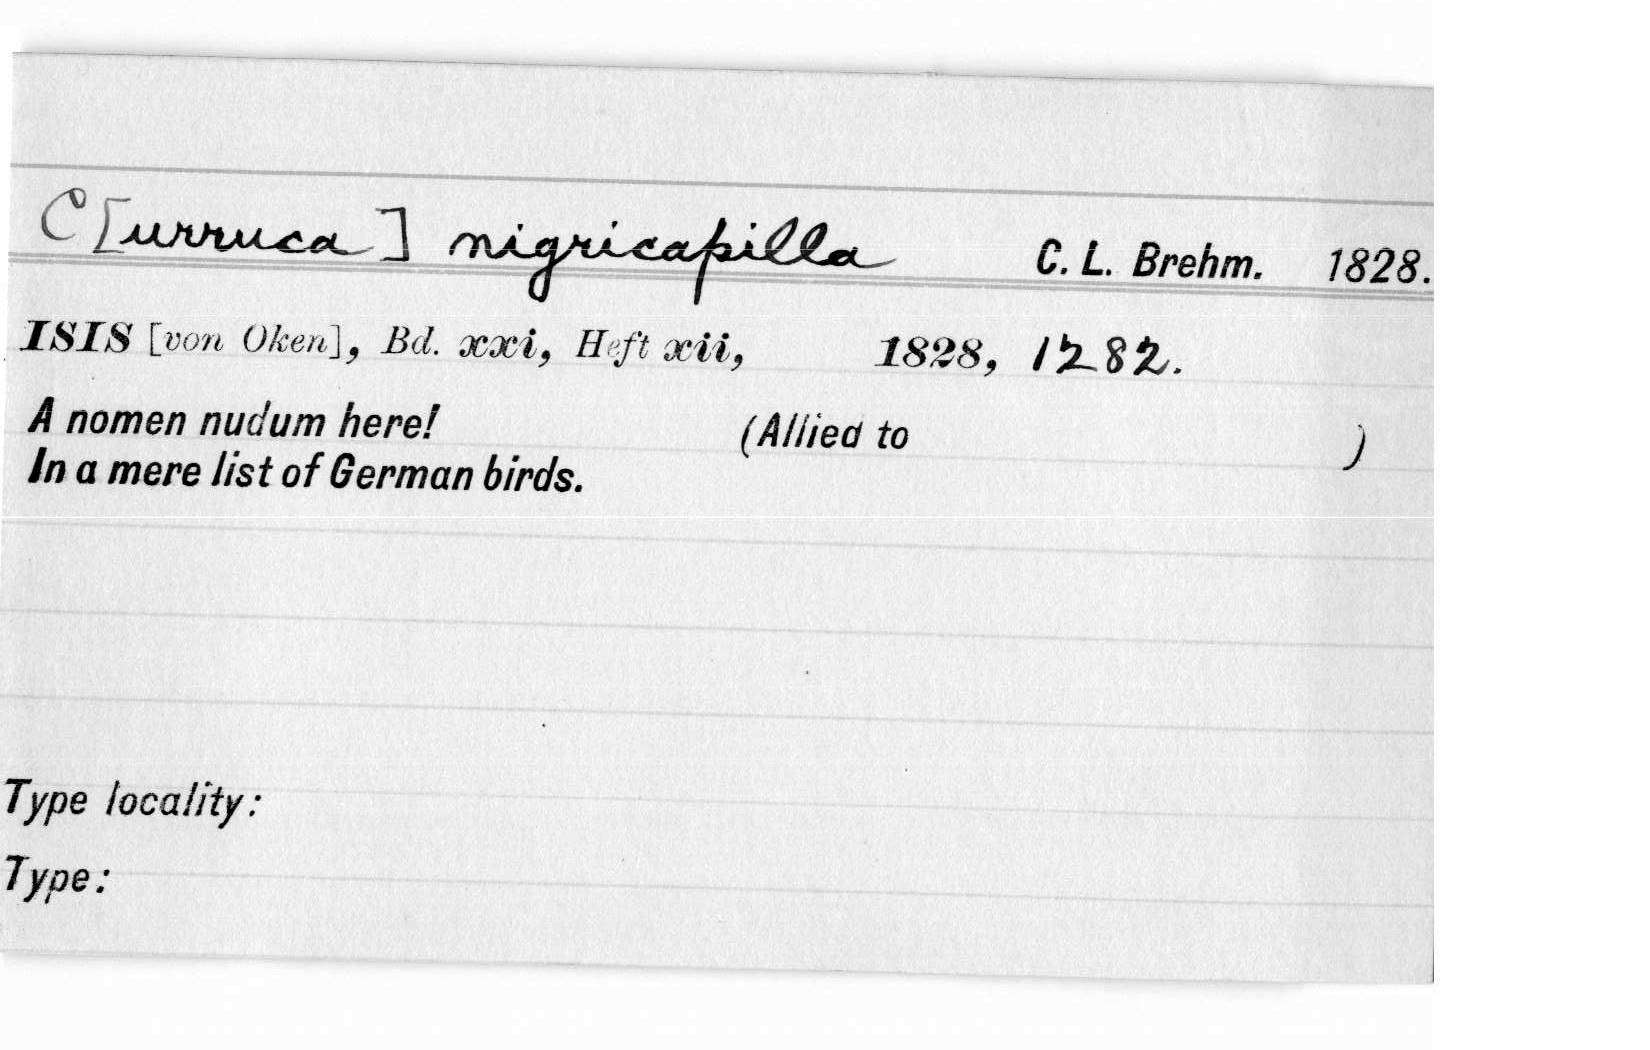 C[urruca] nigricapilla C. L. Brehm. 1828.
ISIS [von Oken], Bd. xxi, Heft xii, 1828, 1282.
A nomen nudum here! (Allied to )
In a mere list of German birds.
Type locality:
Type: